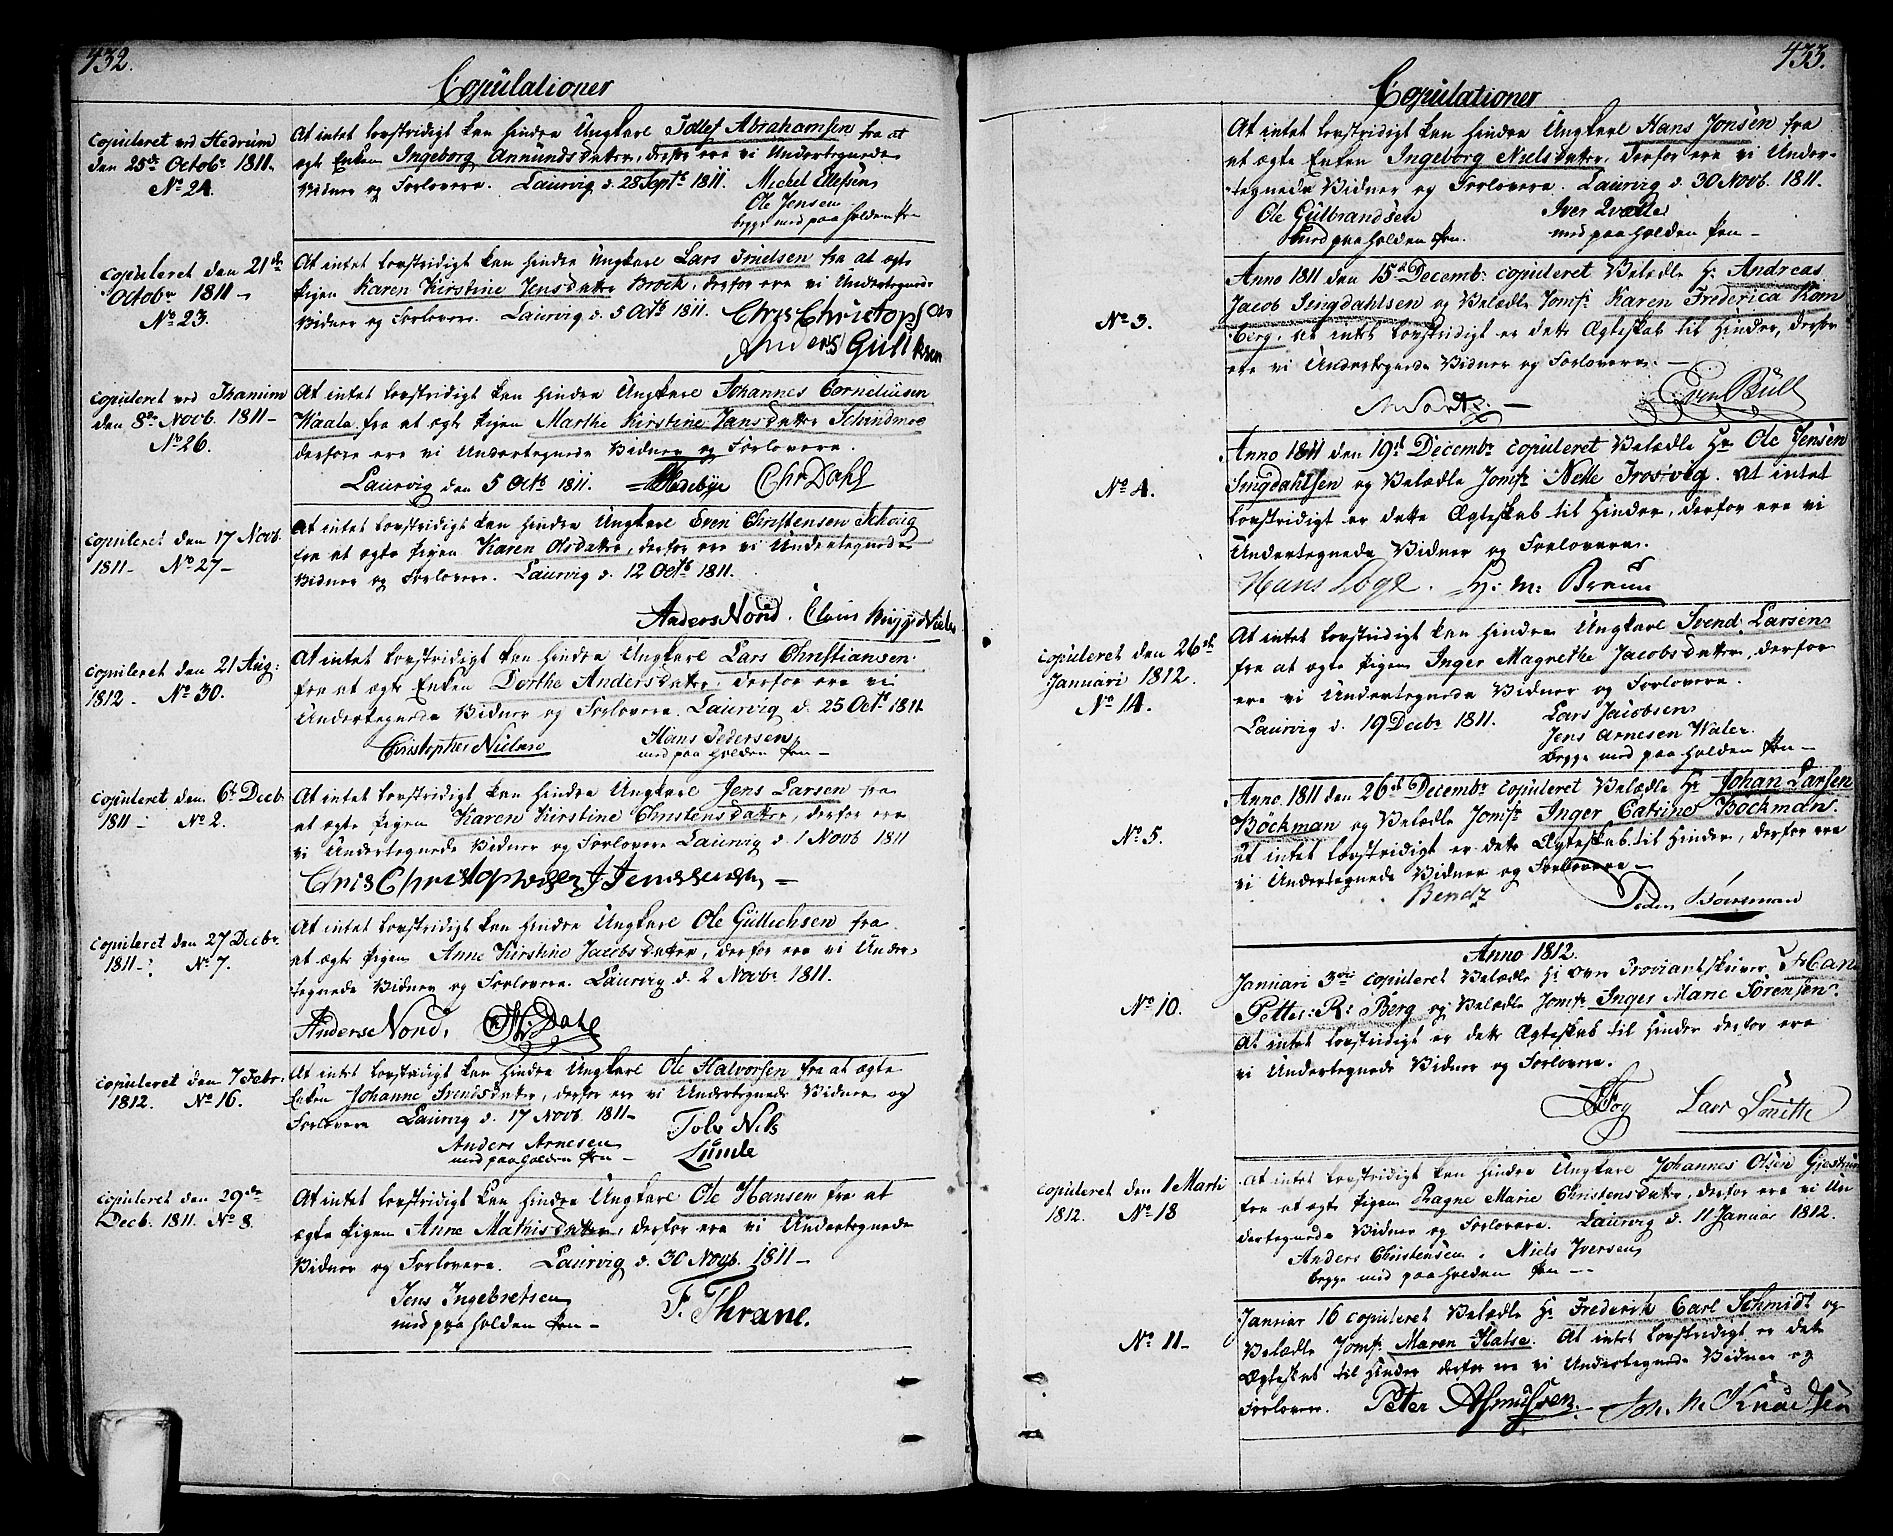 432.
Copulationer
copuleret ved Hedrum
den 25de Octobr 1811.
No 24.
At intet lovstridigt kan hindre Ungkarl Tollef Abrahamsen fra at
ægte Enken Ingeborg Annunds datter, derfor ere vi Undertegnede
Vidner og Forlovere. Laurvig d. 28 Septb 1811. Michel Ellefsen
Ole Jensen
begge med paaholden Pen
copuleret den 21de
Octobr 1811 –
No 23.
At intet lovstridigt kan hindre Ungkarl Lars Truelsen fra at ægte
Pigen Karen Kirstine Jensdatter Brock, derfor ere vi Undertegnede
Vidner og Forlovere. Laurvig d. 5 Octb 1811. Chris Christophsen
Anders Gulliksen
copuleret ved Thanum
den 8de Novb. 1811 –
No 26.
At intet lovstridigt kan hindre Ungkarl Johannes Corneliusen
Waale fra at ægte Pigen Marthe Kirstine Jansdatter
derfore ere vi Undertegnede Vidner og Forlovere.
Laurvig den 5 Octb 1811. Chr Dahl
copuleret den 17 Novb.
1811 – No 27 –
At intet lovstridigt kan hindre Ungkarl Sven Christensen
fra at ægte Pigen Karen Olsdatter, derfor ere vi Undertegnede
Vidner og Forlovere. Laurvig d. 12 Octb 1811.
Anders Nord.
copuleret den 21 Aug:
1812. No 30.
At intet lovstridigt kan hindre Ungkarl Lars Christiansen
fra at ægte Enken Dorthe Andersdatter, derfor ere vi
Undertegnede Vidner og Forlovere. Laurvig d. 25 Octb 1811
Christopher Nielsen Hans Pedersen
med paa holden Pen –
copuleret den 6t Decb
1811 – No 2.
At intet lovstridigt kan hindre Ungkarl Jens Larsen fra
at ægte Pigen Karen Kirstine Christensdatter, derfor ere
vi Undertegnede Vidner og Forlovere Laurvig d. 1 Novb 1811
Chris Christophersen J Jenssen –
copuleret den 27 Decbr
1811 – No 7.
At intet lovstridigt kan hindre Ungkarl Ole Gullichsen fra
at ægte Pigen Anne Kirstine Jacobsdatter, derfor ere vi Under-
tegnede Vidner og Forlovere. Laurvig d. 2 Novbr 1811.
Anders Nord. Dahl
copuleret den 7 Febr.
1812. No 16.
At intet lovstridigt kan hindre Ungkarl Ole Halvorsen fra at ægte
Enken Johanne Svendsdatter, derfor ere vi Undertegnede Vidner og
Forlovere Laurvig d. 17 Novb. 1811 –
Anders Arnesen Tolv Nils
med paaholden Pen – Lunde
copuleret den 29de
Decb. 1811. No 8.
At intet lovstridigt kan hindre Ungkarl Ole Hansen fra at
ægte Pigen Anne Mathisdatter, derfor ere vi Undertegnede
Vidner og Forlovere. Laurvig d. 30 Novb. 1811 –
Jens Ingebretsen F. Thrane.
med paa holden Pen –
433.
Copulationer
At intet lovstridigt kan hindre Ungkarl Hans Jonsen fra
at ægte Enken Ingeborg Nielsdatter, derfor ere vi Under-
tegnede Vidner og Forlovere. Laurvig d. 30 Novb. 1811.
Ole Gulbrandsen Iver
med paa holden Pen. med paa holden Pen –
No 3.
Anno 1811 den 15d Decembr copuleret Velædle Hr Andreas
Jacob Smgdahlsen og Velædle Jomfr Karen Frederica Rom
berg, at intet lovstridigt er dette Ægteskab til Hinder, derfor
ere vi Undertegnede Vidner og Forlovere. –
Even Bull
No 4.
Anno 1811 den 19d Decembr copuleret Velædle Hr Ole Jensen
Smgdahlsen og Velædle Jomfr Nelle Trosvig. At intet
lovstridigt er dette Ægteskab til Hinder, derfor ere vi
Undertegnede Vidner og Forlovere.
Hans Loge. H: M: Bruun
copuleret den 26de
Januari 1812.
No 14.
At intet lovstridigt kan hindre Ungkarl Svend Larsen
fra at ægte Pigen Inger Magrethe Jacobsdatter, derfor
ere vi Undertegnede Vidner og Forlovere.
Laurvig d. 19 Decbr 1811. Lars Jacobsen
Jens Arnesen Waler
Begge med paa holden Pen –
No 5.
Anno 1811 den 26d Decembr copuleret Velædle Hr Johan Larsen
Böckman og Velædle Jomfr Inger Catrine Böckman
at intet lovstridigt er dette Ægteskab til Hinder, derfor ere
vi Undertegnede Vidner og Forlovere –
Bendz Peder
Anno 1812.
No 10.
Januari 3die copuleret Velædle Hr over Proviantskriver
Petter: R: Berg og Velædle Jomfr Inger Marie Sörensen.
At intet lovstridigt er dette Ægteskab til Hinder derfor ere
vi Undertegnede Vidner og Forlovere.
Fog Lars Smith
copuleret den 1 Marti
1812. No 18
At intet lovstridigt kan hindre Ungkarl Johannes Olsen
fra at ægte Pigen Ragne Marie Christensdatter, derfor ere vi Un
dertegnede Vidner og Forlovere. Laurvig d. 11 Januar 1812.
Anders Christensen. Niels Iversen
begge med paaholden Pen –
No 11 –
Januar 16 copuleret Velædle Hr Frederik Carl Schmidt og
Velædle Jomfr Maren Flatse. At intet lovstridigt er dette
Ægteskab til Hinder derfor ere vi Undertegnede Vidner og
Forlovere. Peter Asmussen. Joh. N. Knudsen